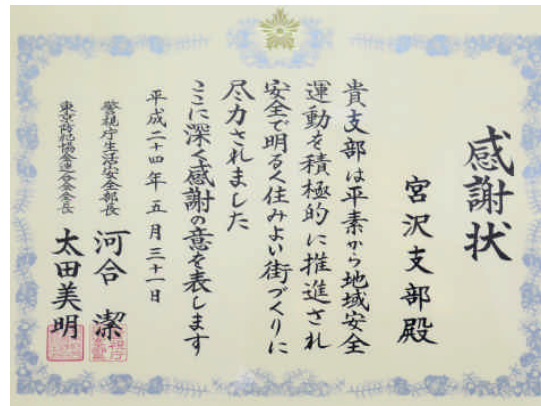 感謝状
宮沢支部殿
貴支部は平素から地域安全
運動を積極的に推進され
安全で明るく住みよい街づくりに
尽力されました
ここに深く感謝の意を表します
平成二十四年五月三十一日
警視庁生活安全部長 河合潔
東京防犯協会連合会会長 太田美明